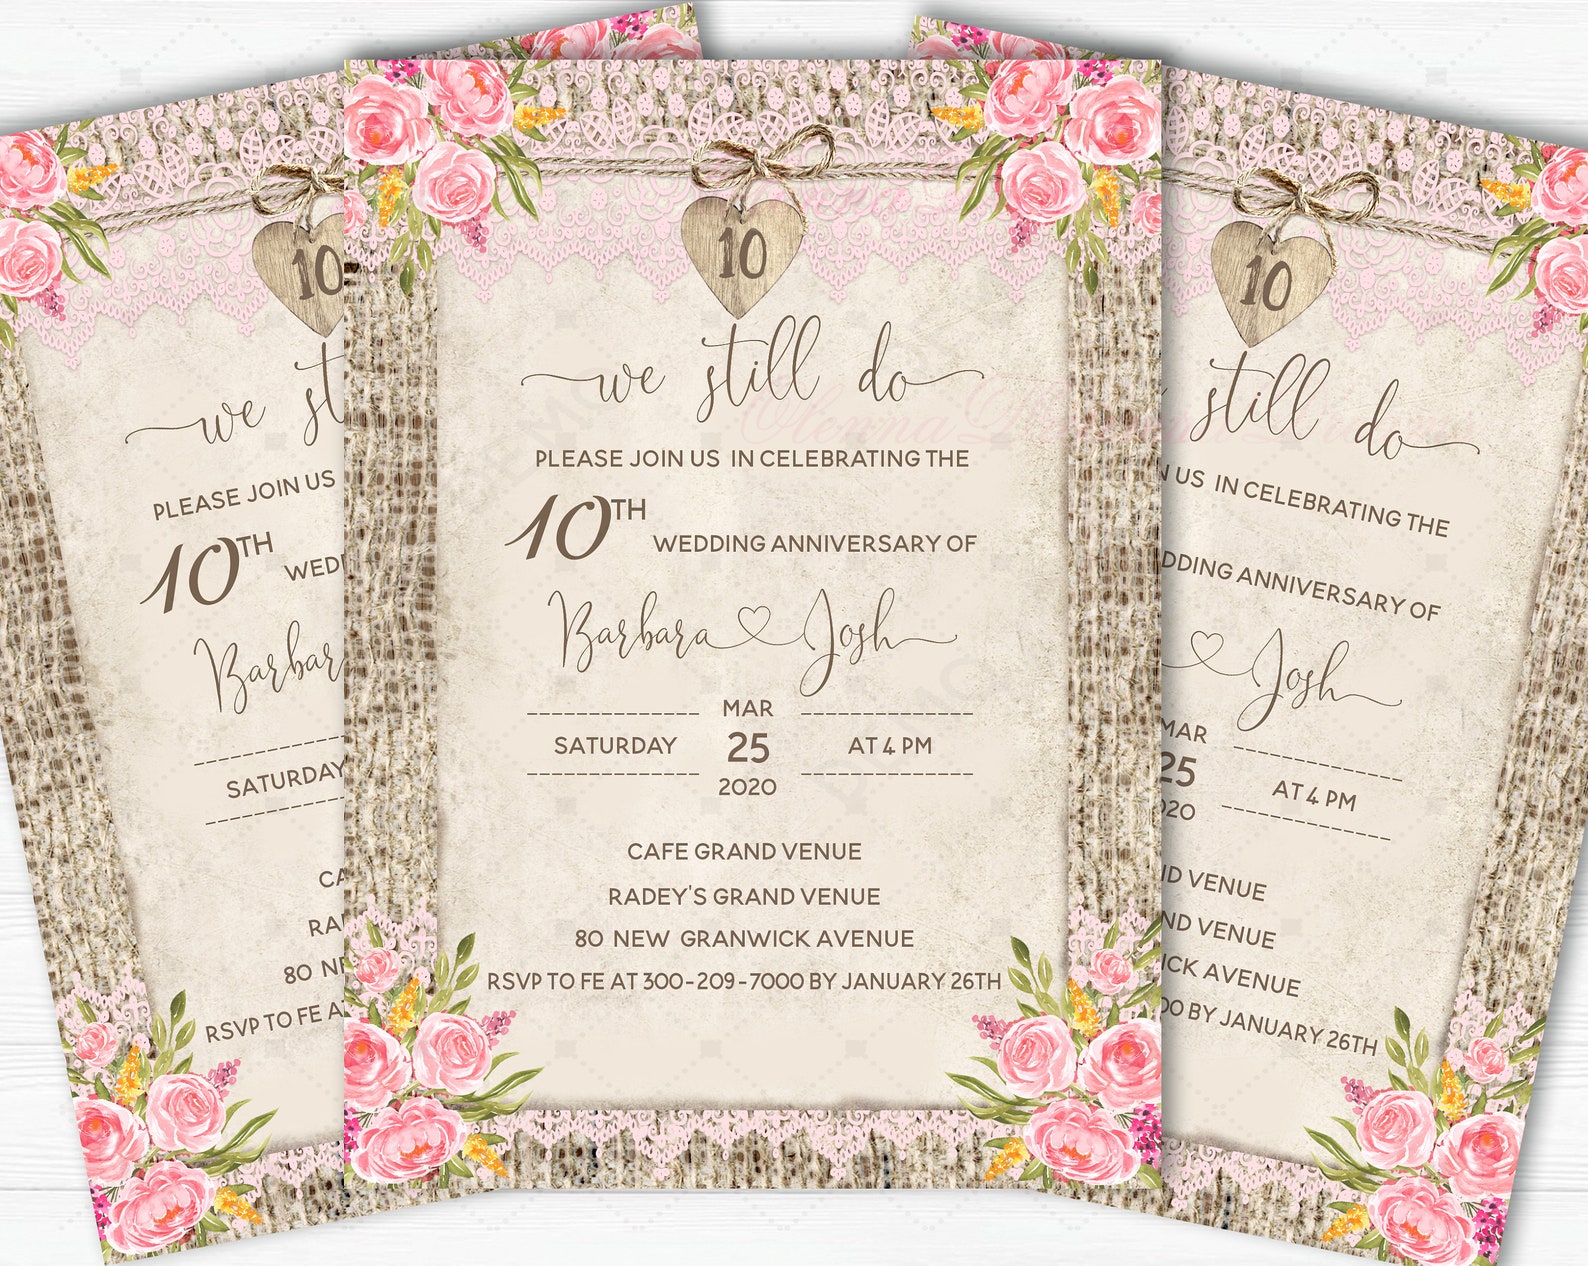 10
we still do
PLEASE JOIN US IN CELEBRATING THE
10TH WEDDING ANNIVERSARY OF
Barbara Josh
MAR
SATURDAY 25 AT 4 PM
2020
CAFE GRAND VENUE
RADEY'S GRAND VENUE
80 NEW GRANWICK AVENUE
RSVP TO FE AT 300-209-7000 BY JANUARY 26TH
10
we st
PLEASE JOIN US
10TH WEDD
Barbar
SATURDAY
CA
RA
80 NE
RSVP TO FE A
10
still do
N US IN CELEBRATING THE
DDING ANNIVERSARY OF
Josh
MAR
25 AT 4 PM
2020
ND VENUE
ND VENUE
ICK AVENUE
00 BY JANUARY 26TH